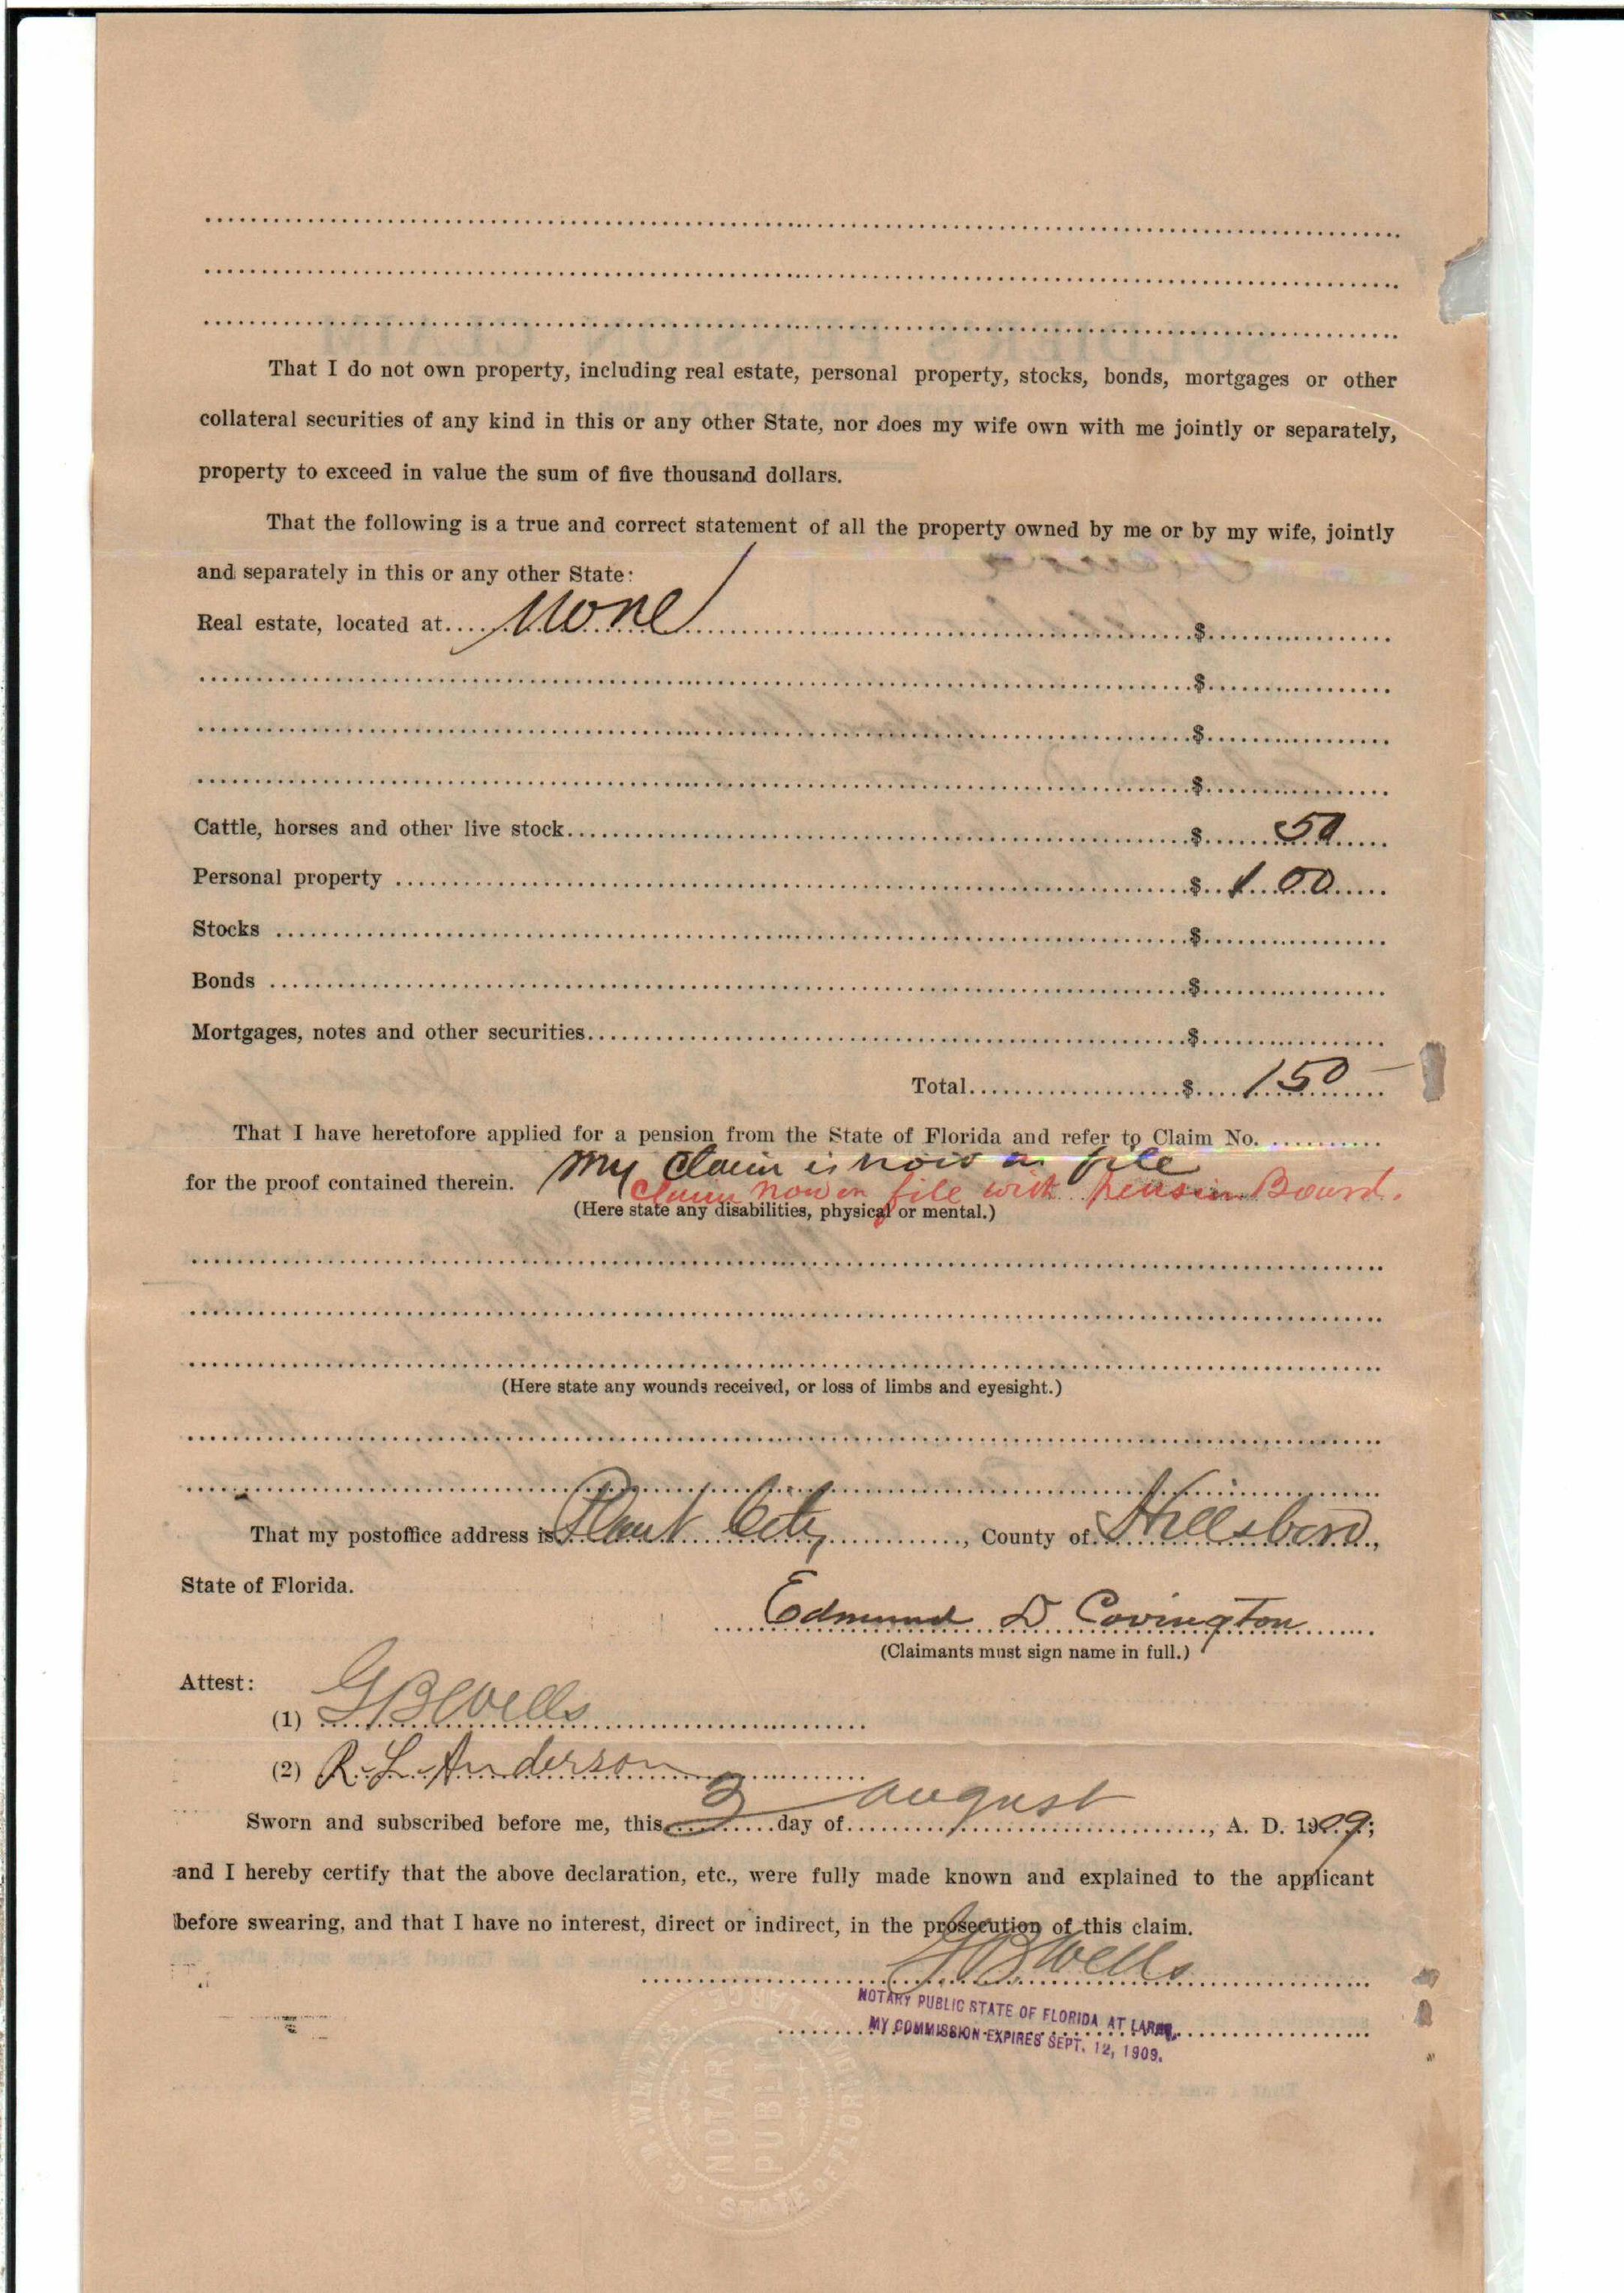 That I do not own property, including real estate, personal property, stocks, bonds, mortgages or other
collateral securities of any kind in this or any other State, nor does my wife own with me jointly or separately,
property to exceed in value the sum of five thousand dollars.
That the following is a true and correct statement of all the property owned by me or by my wife, jointly
and separately in this or any other State:
Real estate, located at.... None $
$
$
$
Cattle, horses and other live stock $ 50
Personal property $ 100
Stocks $
Bonds $
Mortgages, notes and other securities $
Total $ 150
That I have heretofore applied for a pension from the State of Florida and refer to Claim No.
for the proof contained therein. My Claim is now on file
Claim now on file with Pension Board.
(Here state any disabilities, physical or mental.)
(Here state any wounds received, or loss of limbs and eyesight.)
That my postoffice address is Plant City, County of Hillsboro,
State of Florida.
Edmund D Covington
(Claimants must sign name in full.)
Attest:
(1) G B Wells
(2) R. L. Anderson
Sworn and subscribed before me, this 3 day of august, A. D. 1909;
and I hereby certify that the above declaration, etc., were fully made known and explained to the applicant
before swearing, and that I have no interest, direct or indirect, in the prosecution of this claim.
G B Wells
NOTARY PUBLIC STATE OF FLORIDA AT LARGE.
MY COMMISSION EXPIRES SEPT. 12, 1909.
NOTARY PUBLIC
STATE OF FLORIDA